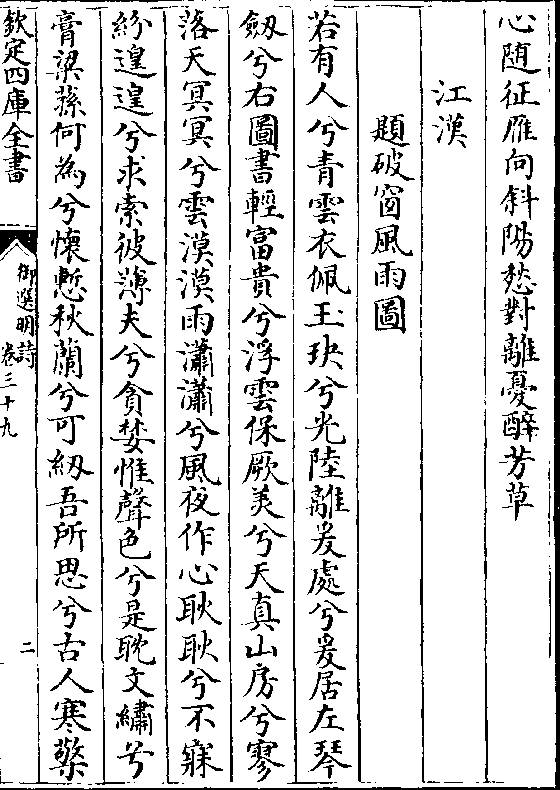 心随征雁向斜陽愁對離憂醉芳草
江漢
題破窗風雨圖
若有人兮青雲衣佩玉玦兮光陸離爰處兮爰居左琴
劔兮右圖書輕富貴兮浮雲保厥美兮天真山房兮寥
落天冥冥兮雲漠漠雨瀟瀟兮風夜作心耿耿兮不寐
紛遑遑兮求索彼薄夫兮貪婪惟聲色兮是耽文繡兮
膏粱蓀何為兮懷慙秋蘭兮可紉吾所思兮古人寒檠
欽定四庫全書
御選明詩
卷三十九
二